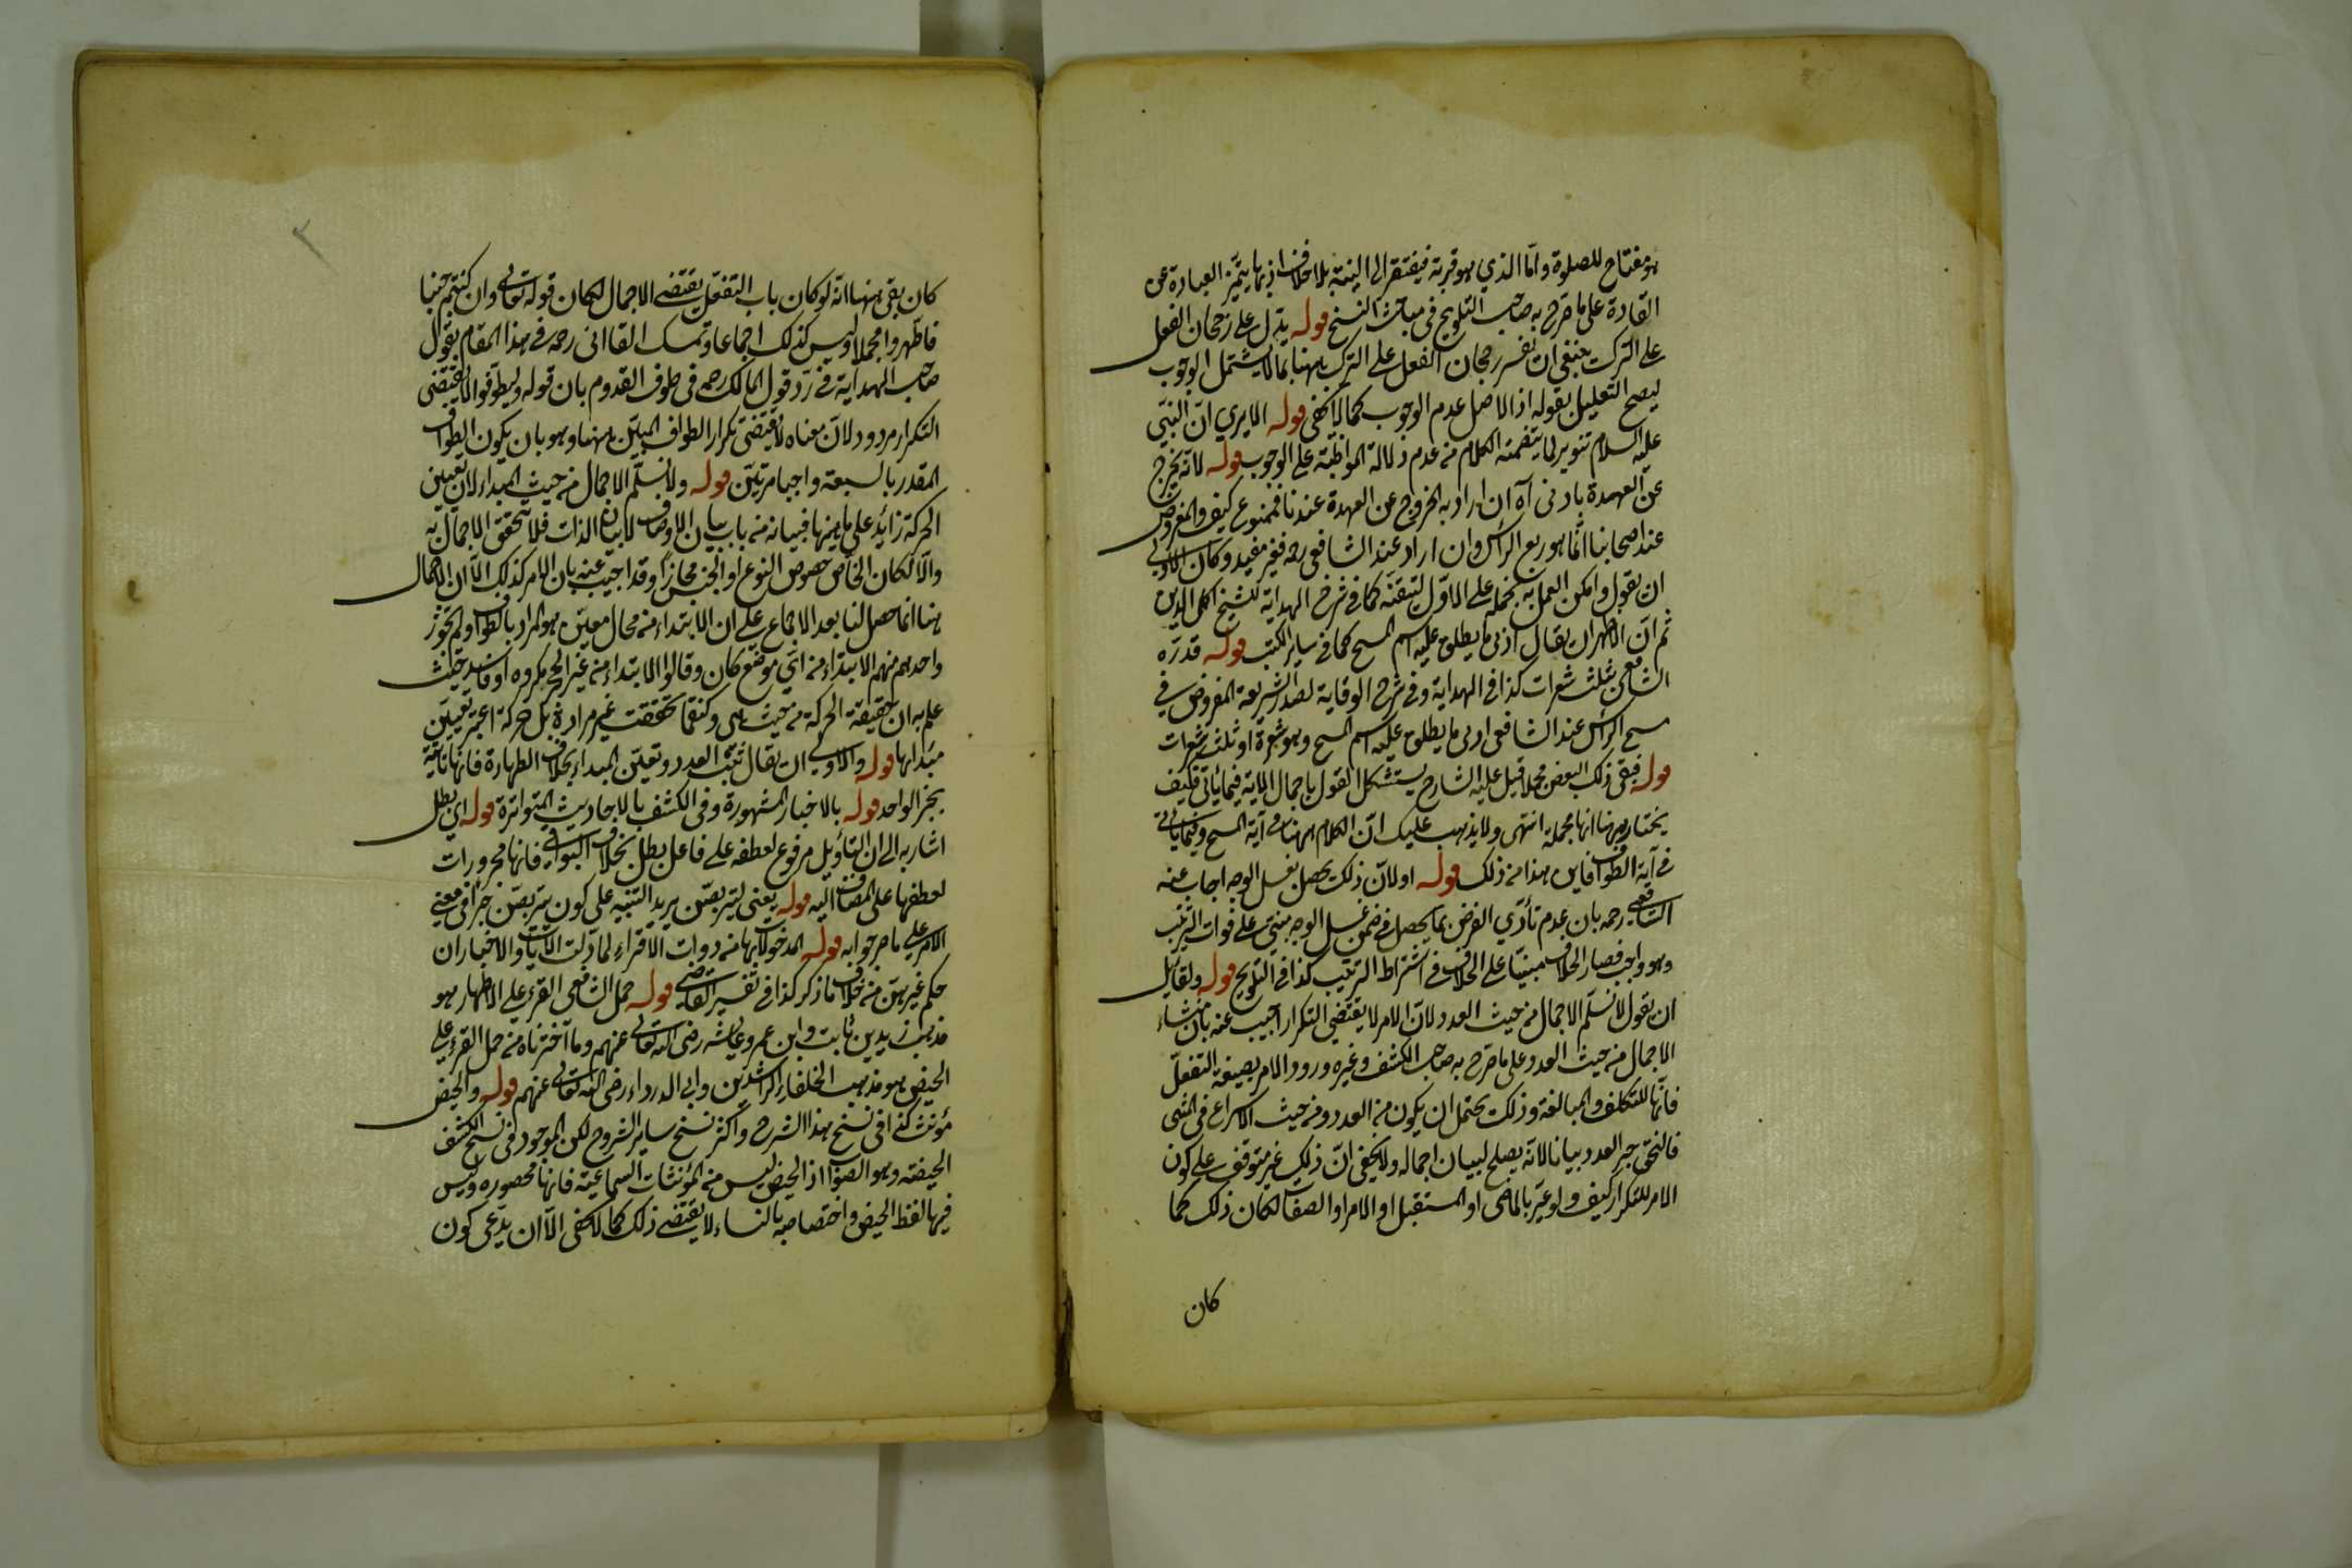 هو مفتاح للصلوة واما الذي هو قربة فيفتقر الى النية بلا خلاف اذ بها يتميز العبادة عن
العادة على ما صرح به صاحب التلويح في مباحث النسخ قوله يدل على رجحان الفعل
على الترك ينبغي ان يفسر رجحان الفعل على الترك ههنا بما لا يشتمل الوجوب
ليصح التعليل بقوله اذ الاصل عدم الوجوب كما لا يخفى قوله الا يرى ان النبي
عليه السلام تنوير لما يتضمنه الكلام من عدم دلالة المواظبة على الوجوب قوله لانه يخرج
عن العهدة بادنى آه ان اراد به الخروج عن العهدة عندنا فممنوع كيف والمفروض
عند اصحابنا انما هو ربع الراس وان اراد عند الشافعي رح فغير مفيد وكان الاولى
ان يقول وامكن العمل به بحمله على الاول لتيقنه كما في شرح الهداية للشيخ اكمل الدين
ثم ان الاظهر ان يقال ادنى ما يطلق عليه اسم المسح كما في ساير الكتب قوله قدره
الشافعي بثلث شعرات كذا في الهداية وفي شرح الوقاية لصدر الشريعة المفروض في
مسح الراس عند الشافعي ادنى ما يطلق عليه اسم المسح وهو شعرة او ثلث شعرات
قوله فبقي ذلك البعض مجملا قيل عليه الشارح يستشكل القول باجمال الاية فيما ياتي فكيف
يختار ههنا انها مجملة انتهى ولا يذهب عليك ان الكلام ههنا في آية المسح وفيما ياتي
في آية الطواف فاين هذا من ذلك قوله اولان ذلك يحصل بغسل الوجه اجاب عنه
الشافعي رحمه بان عدم تأدي الفرض بما يحصل في ضمن غسل الوجه مبني على فوات الترتيب
وهو واجب فصار الخلاف مبنيا على الخلاف في اشتراط الترتيب كذا في التلويح قوله ولقايل
ان يقول لا نسلم الاجمال من حيث العدد لان الامر لا يقتضي التكرار اجيب عنه بان منشاء
الاجمال من حيث العدد على ما صرح به صاحب الكشف وغيره ورود الامر بصيغة التفعل
فانها للتكلف والمبالغة وذلك يحتمل ان يكون من العدد ومن حيث الاسراع في المشي
فالتحق خبر العدد بيانا لانه يصلح لبيان اجماله ولا يخفى ان ذلك غير متوقف على كون
الامر للتكرار كيف ولو عبر بالماضي او المستقبل او الامر او الصفة لكان ذلك كما
كان
كان بقي ههنا انه لو كان باب التفعل يقتضي الاجمال لكان قوله تعالى وان كنتم جنبا
فاطهروا مجملا وليس كذلك اجماعا وتمسك القاآني رحمه في هذا المقام بقول
صاحب الهداية في رد قول المالك رحمه في طوف القدوم بان قوله وليطوفوا لا يقتضي
التكرار مردود لان معناه لا يقتضي تكرار الطواف المبين ههنا وهو بان يكون الطواف
المقدر بالسبعة واجبا مرتين قوله ولا نسلم الاجمال من حيث المبداء لان تعيين
الحركة زايد على ماهيتها فبيانه من باب بيان الاوصاف لا بيان الذات فلا يتحقق الاجمال به
والا لكان الخاص خصوص النوع او الجنس مجازا وقد اجيب عنه بان الامر كذلك الا ان الاجمال
هنا انما حصل لنا بعد الاجماع على ان الابتداء من محال معين هو المراد بالطواف ولم يجوز
واحد هم منهم الابتداء من اي موضع كان وقالوا الابتداء من غير الحجر مكروه او فاسد فحيث
علم به ان حقيقة الحركة من حيث هي وكيفما تحققت غير مرادة بل حركة اعتبر تعيين
مبدائها قوله والاولى ان يقال ثبت العدد وتعين المبداء بخلاف الطهارة فانها ثابتة
بخبر الواحد قوله بالاخبار المشهورة وفي الكشف بالاحاديث المتواترة قوله اي بطل
اشار به الى ان التأويل مرفوع لعطفه على فاعل بطل بخلاف البواقي فانها مجرورات
لعطفها على المضاف اليه قوله يعنى ليتربصن يريد التنبيه على كون يتربصن خبرا في معنى
الامر على ما مر جوابه قوله المدخول بها من ذوات الاقراء لما دلت الايات والاخبار ان
حكم غيرهن من خلاف ما ذكر كذا في تفسير القاضي قوله حمل الشافعي القرء على الاطهار هو
مذهب زيد بن ثابت وابن عمر وعايشة رضى الله تعالى عنهم وما اخترناه من حمل القرء على
الحيض هو مذهب الخلفاء الراشدين وابي الدرداء رضى الله تعالى عنهم قوله والحيض
مؤنث كذا في نسخ هذا الشرح واكثر نسخ ساير الشروح لكن الموجود في نسخ الكشف
الحيضة وهو الصواب اذ الحيض ليس من المؤنثات السماعية فانها محصورة وليس
فيها لفظ الحيض واختصاصه بالنساء لا يقتضي ذلك كما لا يخفى الا ان يدعى كون